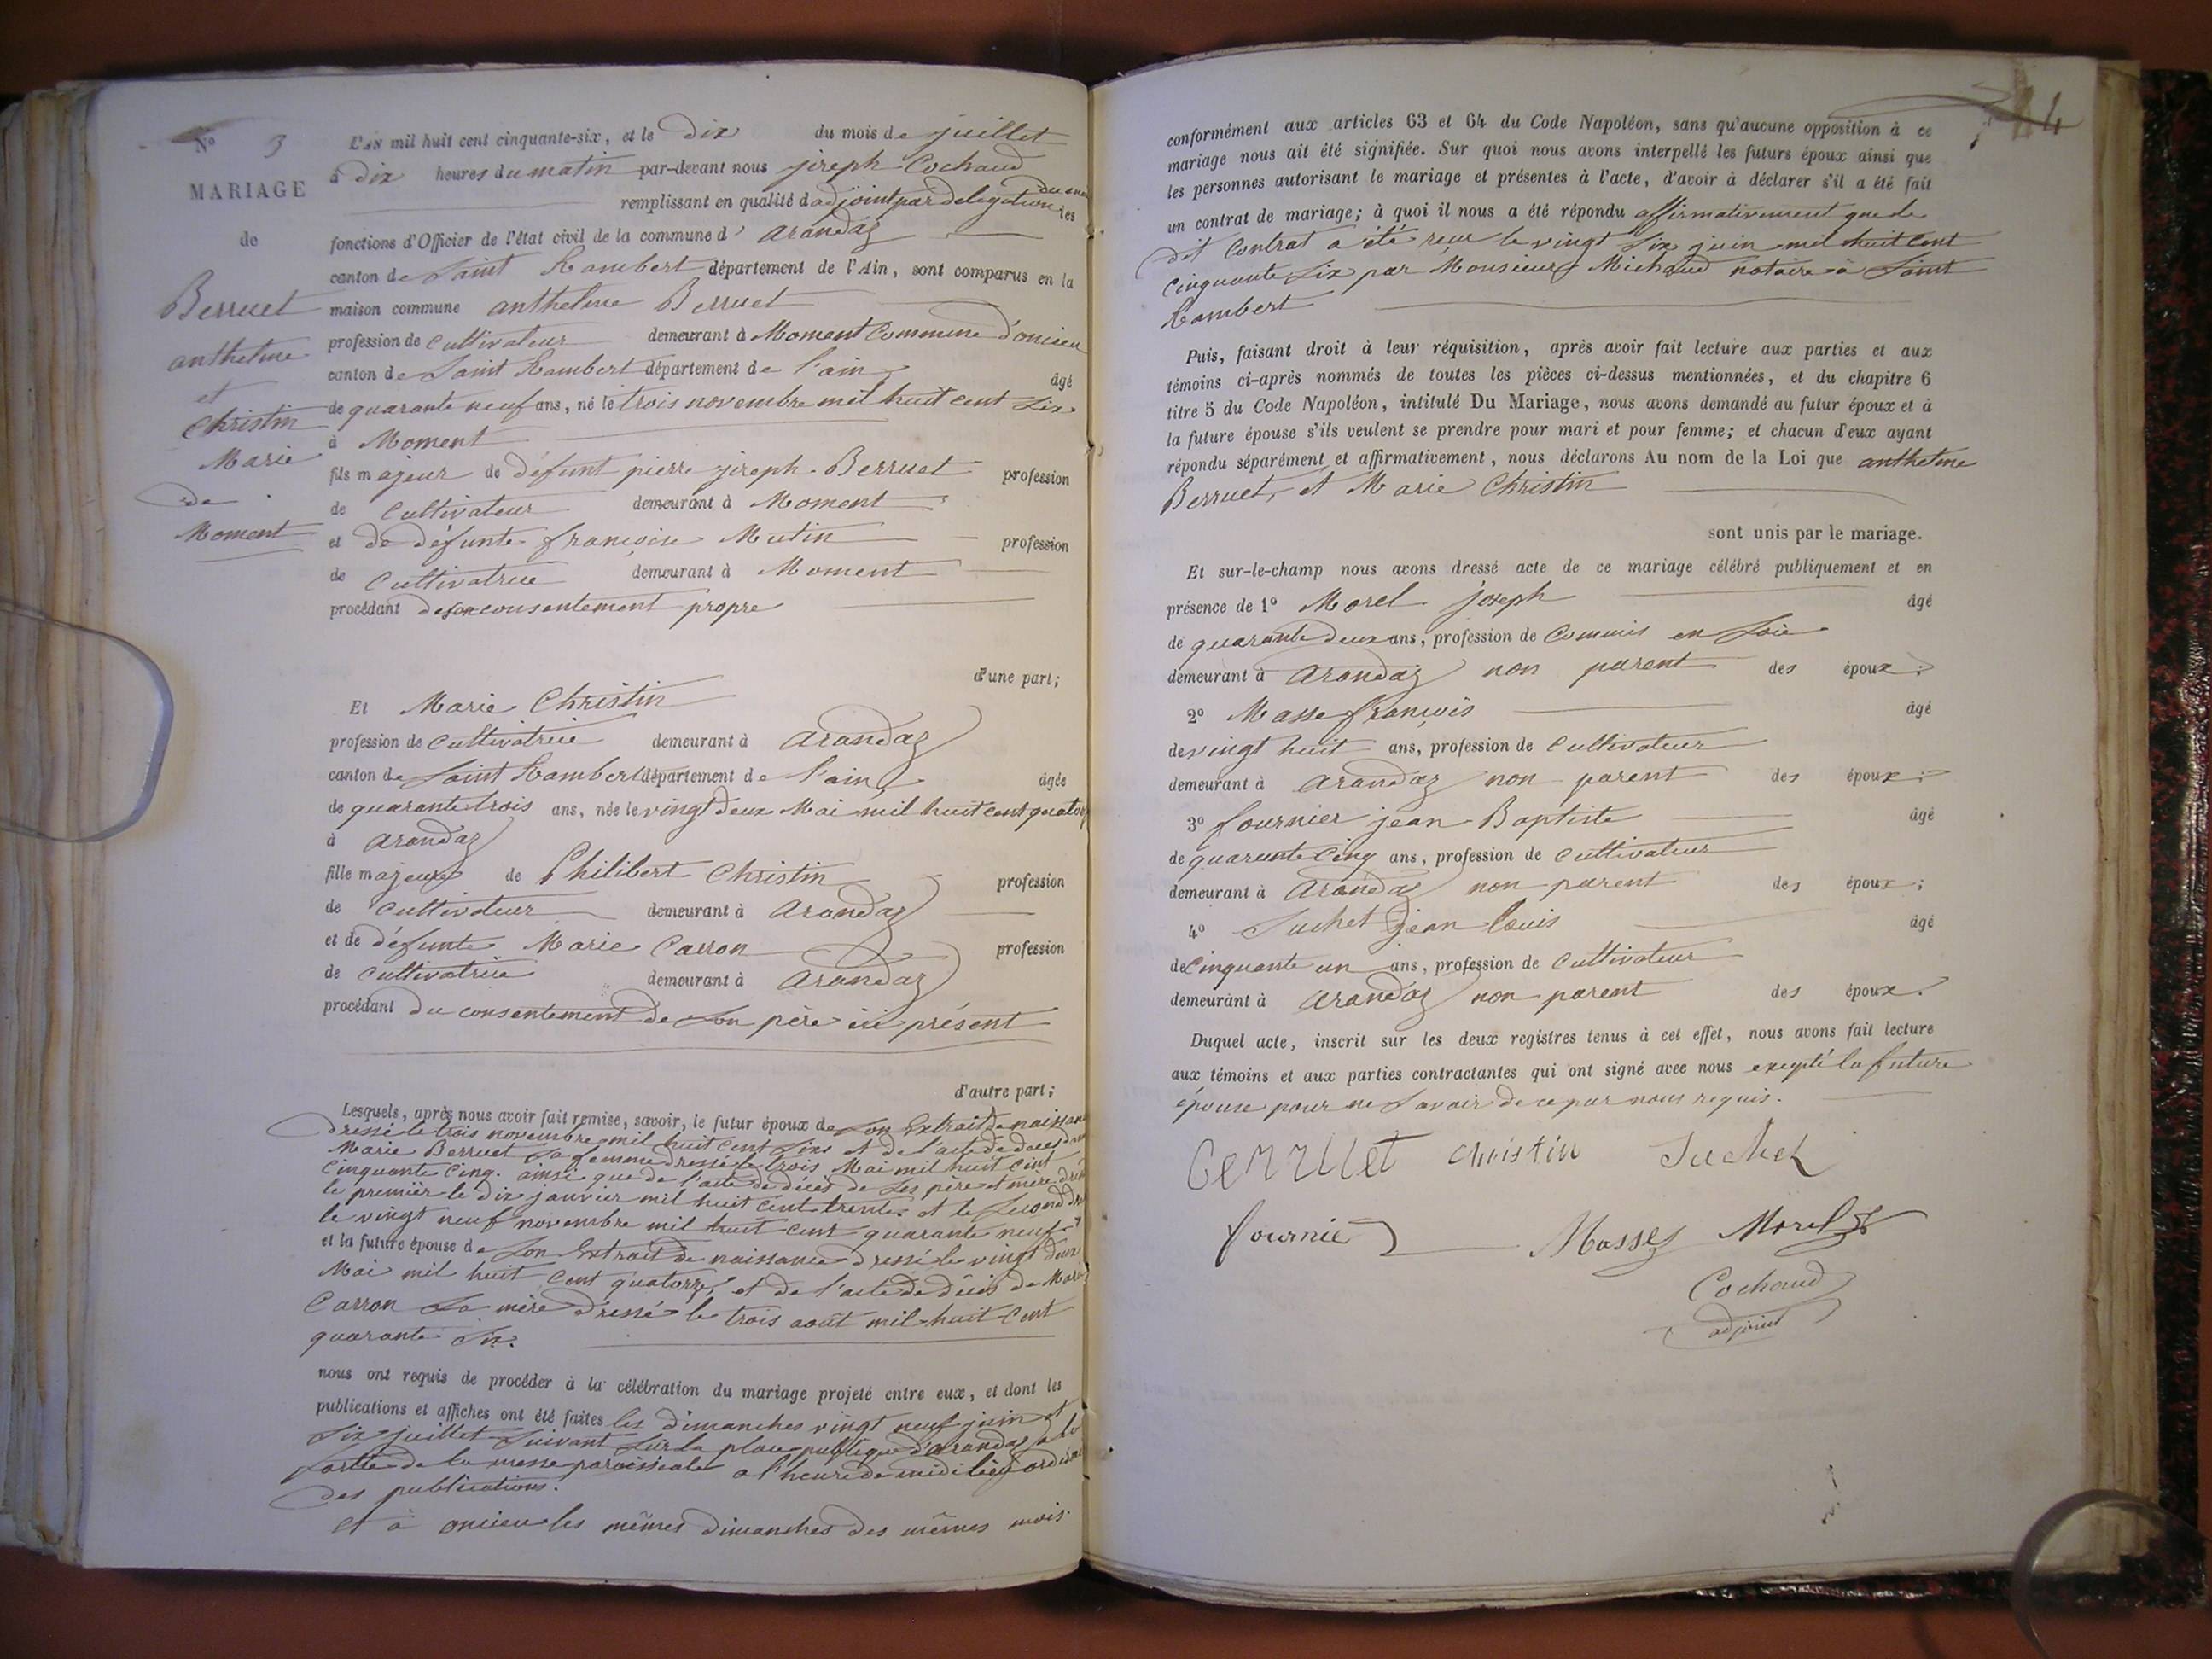 N° 3
MARIAGE
de
Berruet
anthelme
et
Christin
Marie
de
Moment
L'AN mil huit cent cinquante-six, et le dix du mois de juillet
à dix heures du matin par-devant nous joseph Cochaud
remplissant en qualité d'adjoint par délégation les
fonctions d'Officier de l'état civil de la commune d' arandaz
canton de Saint Rambert département de l'Ain, sont comparus en la
maison commune anthelme Berruet
profession de Cultivateur demeurant à Moment Commune d'oncieu
canton de Saint Rambert département de l'ain âgé
de quarante neuf ans, né le trois novembre mil huit cent six
à Moment
fils majeur de défunt pierre joseph Berruet profession
de Cultivateur demeurant à Moment
et de défunte francoise Mutin profession
de Cultivatrice demeurant à Moment
procédant de son consentement propre
d'une part;
Et Marie Christin
profession de Cultivatrice demeurant à arandaz
canton de Saint Rambert département de l'ain âgée
de quarante trois ans, née le vingt deux Mai mil huit cent quator
à arandaz
fille majeure de Philibert Christin profession
de Cultivateur demeurant à arandaz
et de défunte Marie Carron profession
de Cultivatrice demeurant à arandaz
procédant du consentement de son père ici présent
d'autre part;
Lesquels, après nous avoir fait remise, savoir, le futur époux de son Extrait de naissan
dressé le trois novembre mil huit cent six et de l'acte de décès
Marie Berruet sa femme dressé le trois Mai mil huit cent
Cinquante Cinq. ainsi que de l'acte de décès de ses père et mère
le premier le dix janvier mil huit cent trente et le second
le vingt neuf novembre mil huit cent quarante neuf
et la future épouse de son Extrait de naissance dressé le vingt deux
Mai mil huit Cent quatorze, et de l'acte de décès de Marie
Carron sa mère dressé le trois août mil huit Cent
quarante six.
nous ont requis de procéder à la célébration du mariage projeté entre eux, et dont les
publications et affiches ont été faites les dimanches vingt neuf juin et
six juillet suivant sur la place publique d'arandaz a la
sortie de la messe paroissiale a l'heure de midi lieu
des publications.
et à oncieu les mêmes dimanches des mêmes mois.
conformément aux articles 63 et 64 du Code Napoléon, sans qu'aucune opposition à ce
mariage nous ait été signifiée. Sur quoi nous avons interpellé les futurs époux ainsi que
les personnes autorisant le mariage et présentes à l'acte, d'avoir à déclarer s'il a été fait
un contrat de mariage; à quoi il nous a été répondu affirmativement que le
dit Contrat a été reçu le vingt six juin mil huit Cent
Cinquante six par Monsieur Michaud notaire à Saint
Rambert
Puis, faisant droit à leur réquisition, après avoir fait lecture aux parties et aux
témoins ci-après nommés de toutes les pièces ci-dessus mentionnées, et du chapitre 6
titre 5 du Code Napoléon, intitulé Du Mariage, nous avons demandé au futur époux et à
la future épouse s'ils veulent se prendre pour mari et pour femme; et chacun d'eux ayant
répondu séparément et affirmativement, nous déclarons Au nom de la Loi que anthelme
Berruet, et Marie Christin
sont unis par le mariage.
Et sur-le-champ nous avons dressé acte de ce mariage célébré publiquement et en
présence de 1° Morel joseph âgé
de quarante deux ans, profession de Commis en Soie
demeurant à arandaz non parent des époux;
2° Masse françois âgé
de vingt huit ans, profession de Cultivateur
demeurant à arandaz non parent des époux;
3° fournier jean Baptiste âgé
de quarante Cinq ans, profession de Cultivateur
demeurant à arandaz non parent des époux;
4° Suchet jean louis âgé
de Cinquante un ans, profession de Cultivateur
demeurant à arandaz non parent des époux.
Duquel acte, inscrit sur les deux registres tenus à cet effet, nous avons fait lecture
aux témoins et aux parties contractantes qui ont signé avec nous exepté la future
épouse pour ne savoir de ce par nous requis.
berruet Christin Suchet
fournier Masse Morel
Cochaud
adjoint